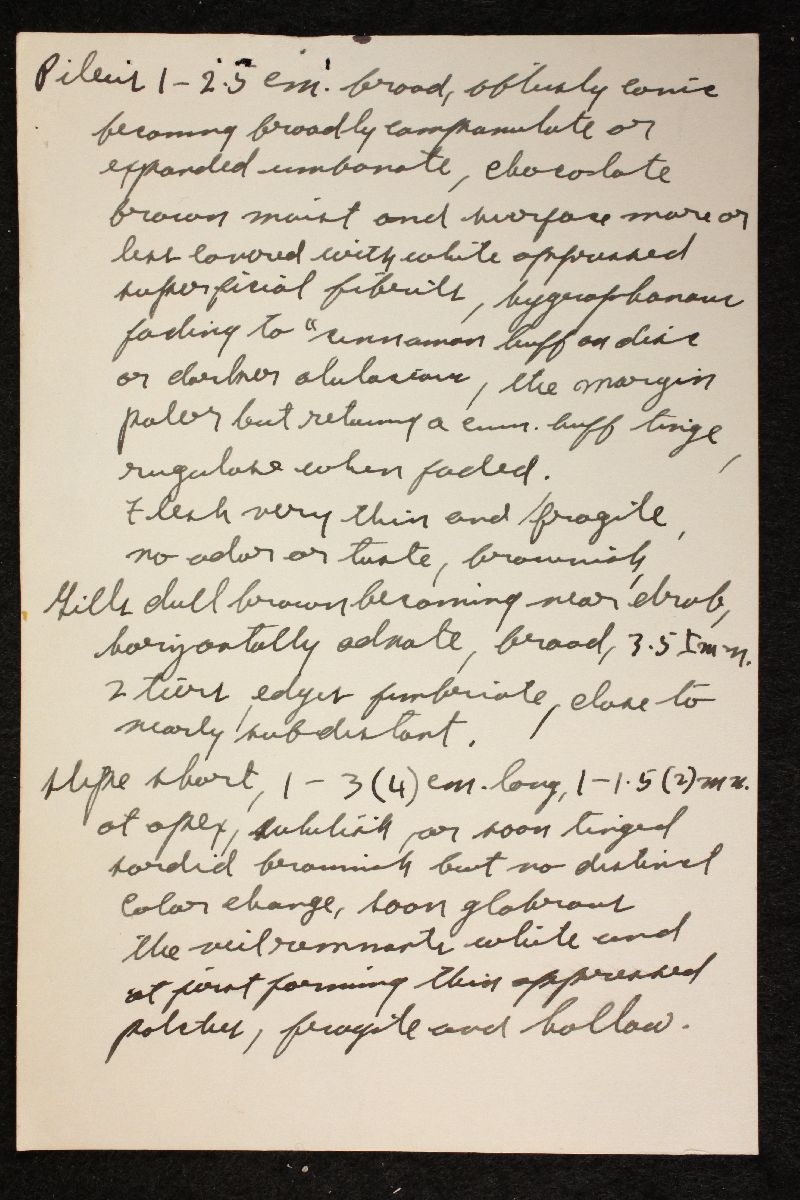 Pileus 1-2.5 cm. broad, obtusly conic
becoming broadly campanulate or
expanded umbonate, chocolate
brown moist and surface more or
less covered with white appressed
superficial fibrils, hygrophanous
fading to "cinnamon buff on disc
or darker alutaceous, the margin
paler but retaining a cinn. buff tinge,
rugulose when faded.
Flesh very thin and fragile,
no odor or taste, brownish
Gills dull brown becoming near drab,
horizontally adnate, broad, 3.5 mm.
2 tiers, edges fimbriate, close to
nearly subdistant.
Stipe short, 1-3(4) cm. long, 1-1.5(2) mm.
at apex, whitish, or soon tinged
sordid brownish but no distinct
color change, soon glabrous
the veil remnants white and
at first forming thin appressed
patches, fragile and hollow.